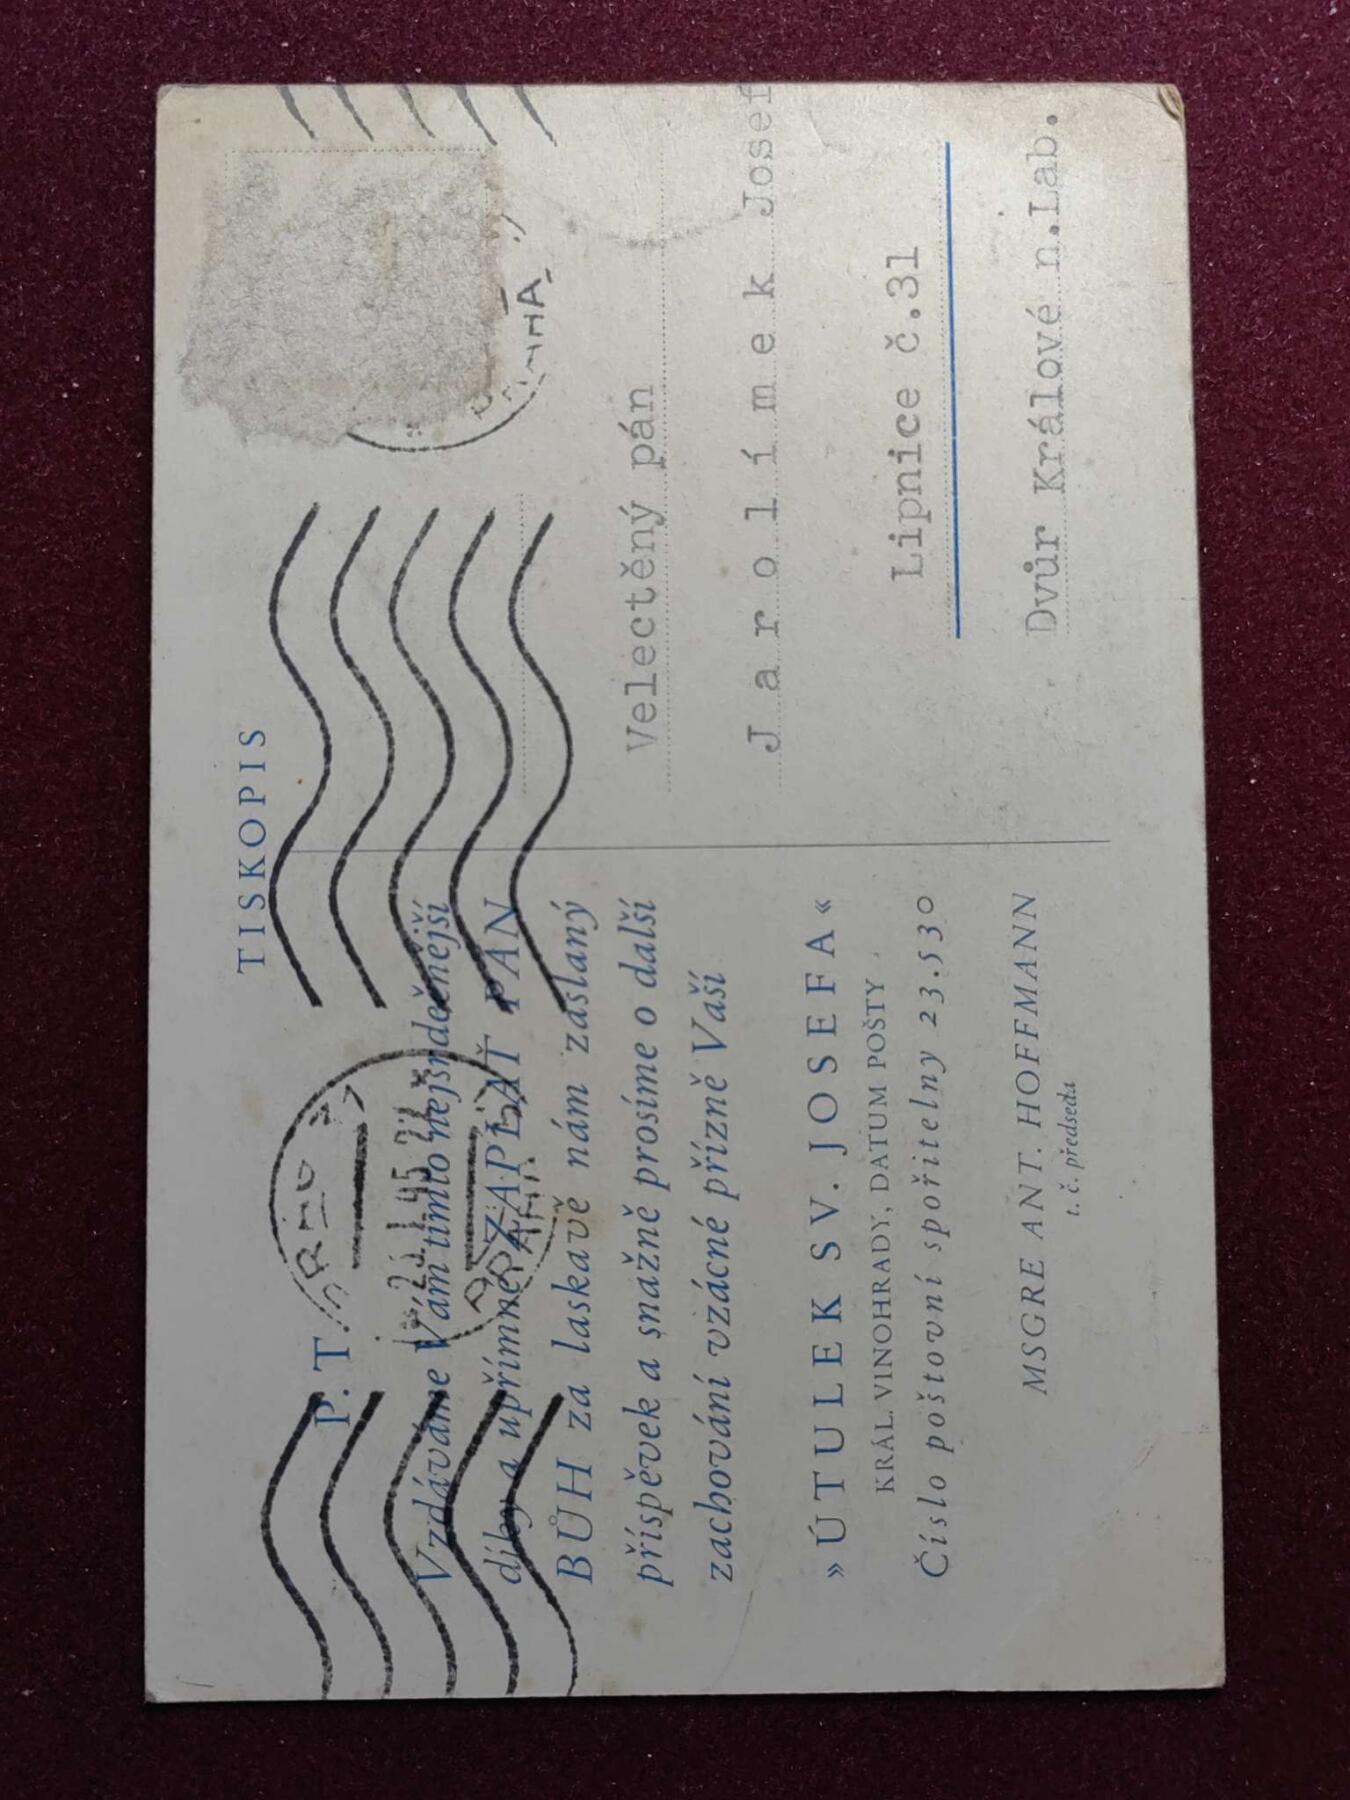 TISKOPIS
P. T.
Vzdáváme Vám tímto nejsrdečnější
díky a upřímné ZAPLAŤ PÁN
BŮH za laskavě nám zaslaný
příspěvek a snažně prosíme o další
zachování vzácné přízně Vaší
»ÚTULEK SV. JOSEFA«
KRÁL. VINOHRADY, DATUM POŠTY
Číslo poštovní spořitelny 23.530
MSGRE ANT. HOFFMANN
t. č. předseda
Velectěný pán
Jarolímek Josef
Lipnice č.31
Dvůr Králové n.Lab.